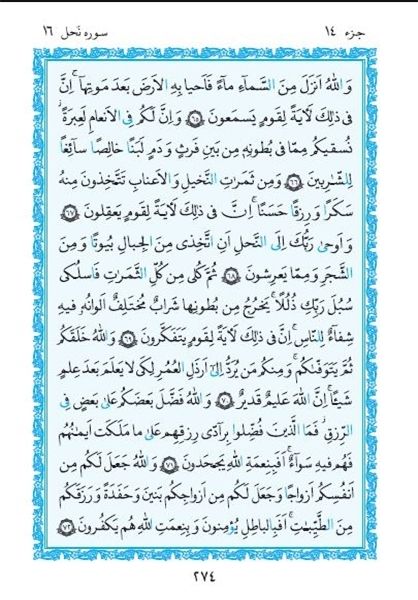 جزء ١٤ سوره نَحل ١٦
وَ اللهُ اَنزَلَ مِنَ السَّماءِ ماءً فَاَحيا بِهِ الاَرضَ بَعدَ مَوتِها ۚ اِنَّ
فى ذٰلِكَ لَآيَةً لِقَومٍ يَسمَعونَ ﴿٦٥﴾ وَ اِنَّ لَكُم فِى الاَنعامِ لَعِبرَةً ۖ
نُسقيكُم مِمّا فى بُطونِهٖ مِن بَينِ فَرثٍ وَ دَمٍ لَبَنًا خالِصًا سآئِغًا
لِلشّٰرِبينَ ﴿٦٦﴾ وَ مِن ثَمَرٰتِ النَّخيلِ وَ الاَعنابِ تَتَّخِذونَ مِنهُ
سَكَرًا وَ رِزقًا حَسَنًا ۗ اِنَّ فى ذٰلِكَ لَآيَةً لِقَومٍ يَعقِلونَ ﴿٦٧﴾
وَ اَوحىٰ رَبُّكَ اِلَى النَّحلِ اَنِ اتَّخِذى مِنَ الجِبالِ بُيوتًا وَ مِنَ
الشَّجَرِ وَ مِمّا يَعرِشونَ ﴿٦٨﴾ ثُمَّ كُلى مِن كُلِّ الثَّمَرٰتِ فَاسلُكى
سُبُلَ رَبِّكِ ذُلُلًا ۚ يَخرُجُ مِن بُطونِها شَرابٌ مُختَلِفٌ اَلوانُهٗ فيهِ
شِفآءٌ لِلنّاسِ ۗ اِنَّ فى ذٰلِكَ لَآيَةً لِقَومٍ يَتَفَكَّرونَ ﴿٦٩﴾ وَ اللهُ خَلَقَكُم
ثُمَّ يَتَوَفّٰىكُم ۚ وَ مِنكُم مَن يُرَدُّ اِلىٰ اَرذَلِ العُمُرِ لِكَى لا يَعلَمَ بَعدَ عِلمٍ
شَيئًا ۚ اِنَّ اللهَ عَليمٌ قَديرٌ ﴿٧٠﴾ وَ اللهُ فَضَّلَ بَعضَكُم عَلىٰ بَعضٍ فِى
الرِّزقِ ۚ فَمَا الَّذينَ فُضِّلوا بِرآدّى رِزقِهِم عَلىٰ ما مَلَكَت اَيمٰنُهُم
فَهُم فيهِ سَوآءٌ ۚ اَفَبِنِعمَةِ اللهِ يَجحَدونَ ﴿٧١﴾ وَ اللهُ جَعَلَ لَكُم مِن
اَنفُسِكُم اَزواجًا وَ جَعَلَ لَكُم مِن اَزواجِكُم بَنينَ وَ حَفَدَةً وَ رَزَقَكُم
مِنَ الطَّيِّبٰتِ ۚ اَفَبِالباطِلِ يُؤمِنونَ وَ بِنِعمَتِ اللهِ هُم يَكفُرونَ ﴿٧٢﴾
٢٧٤